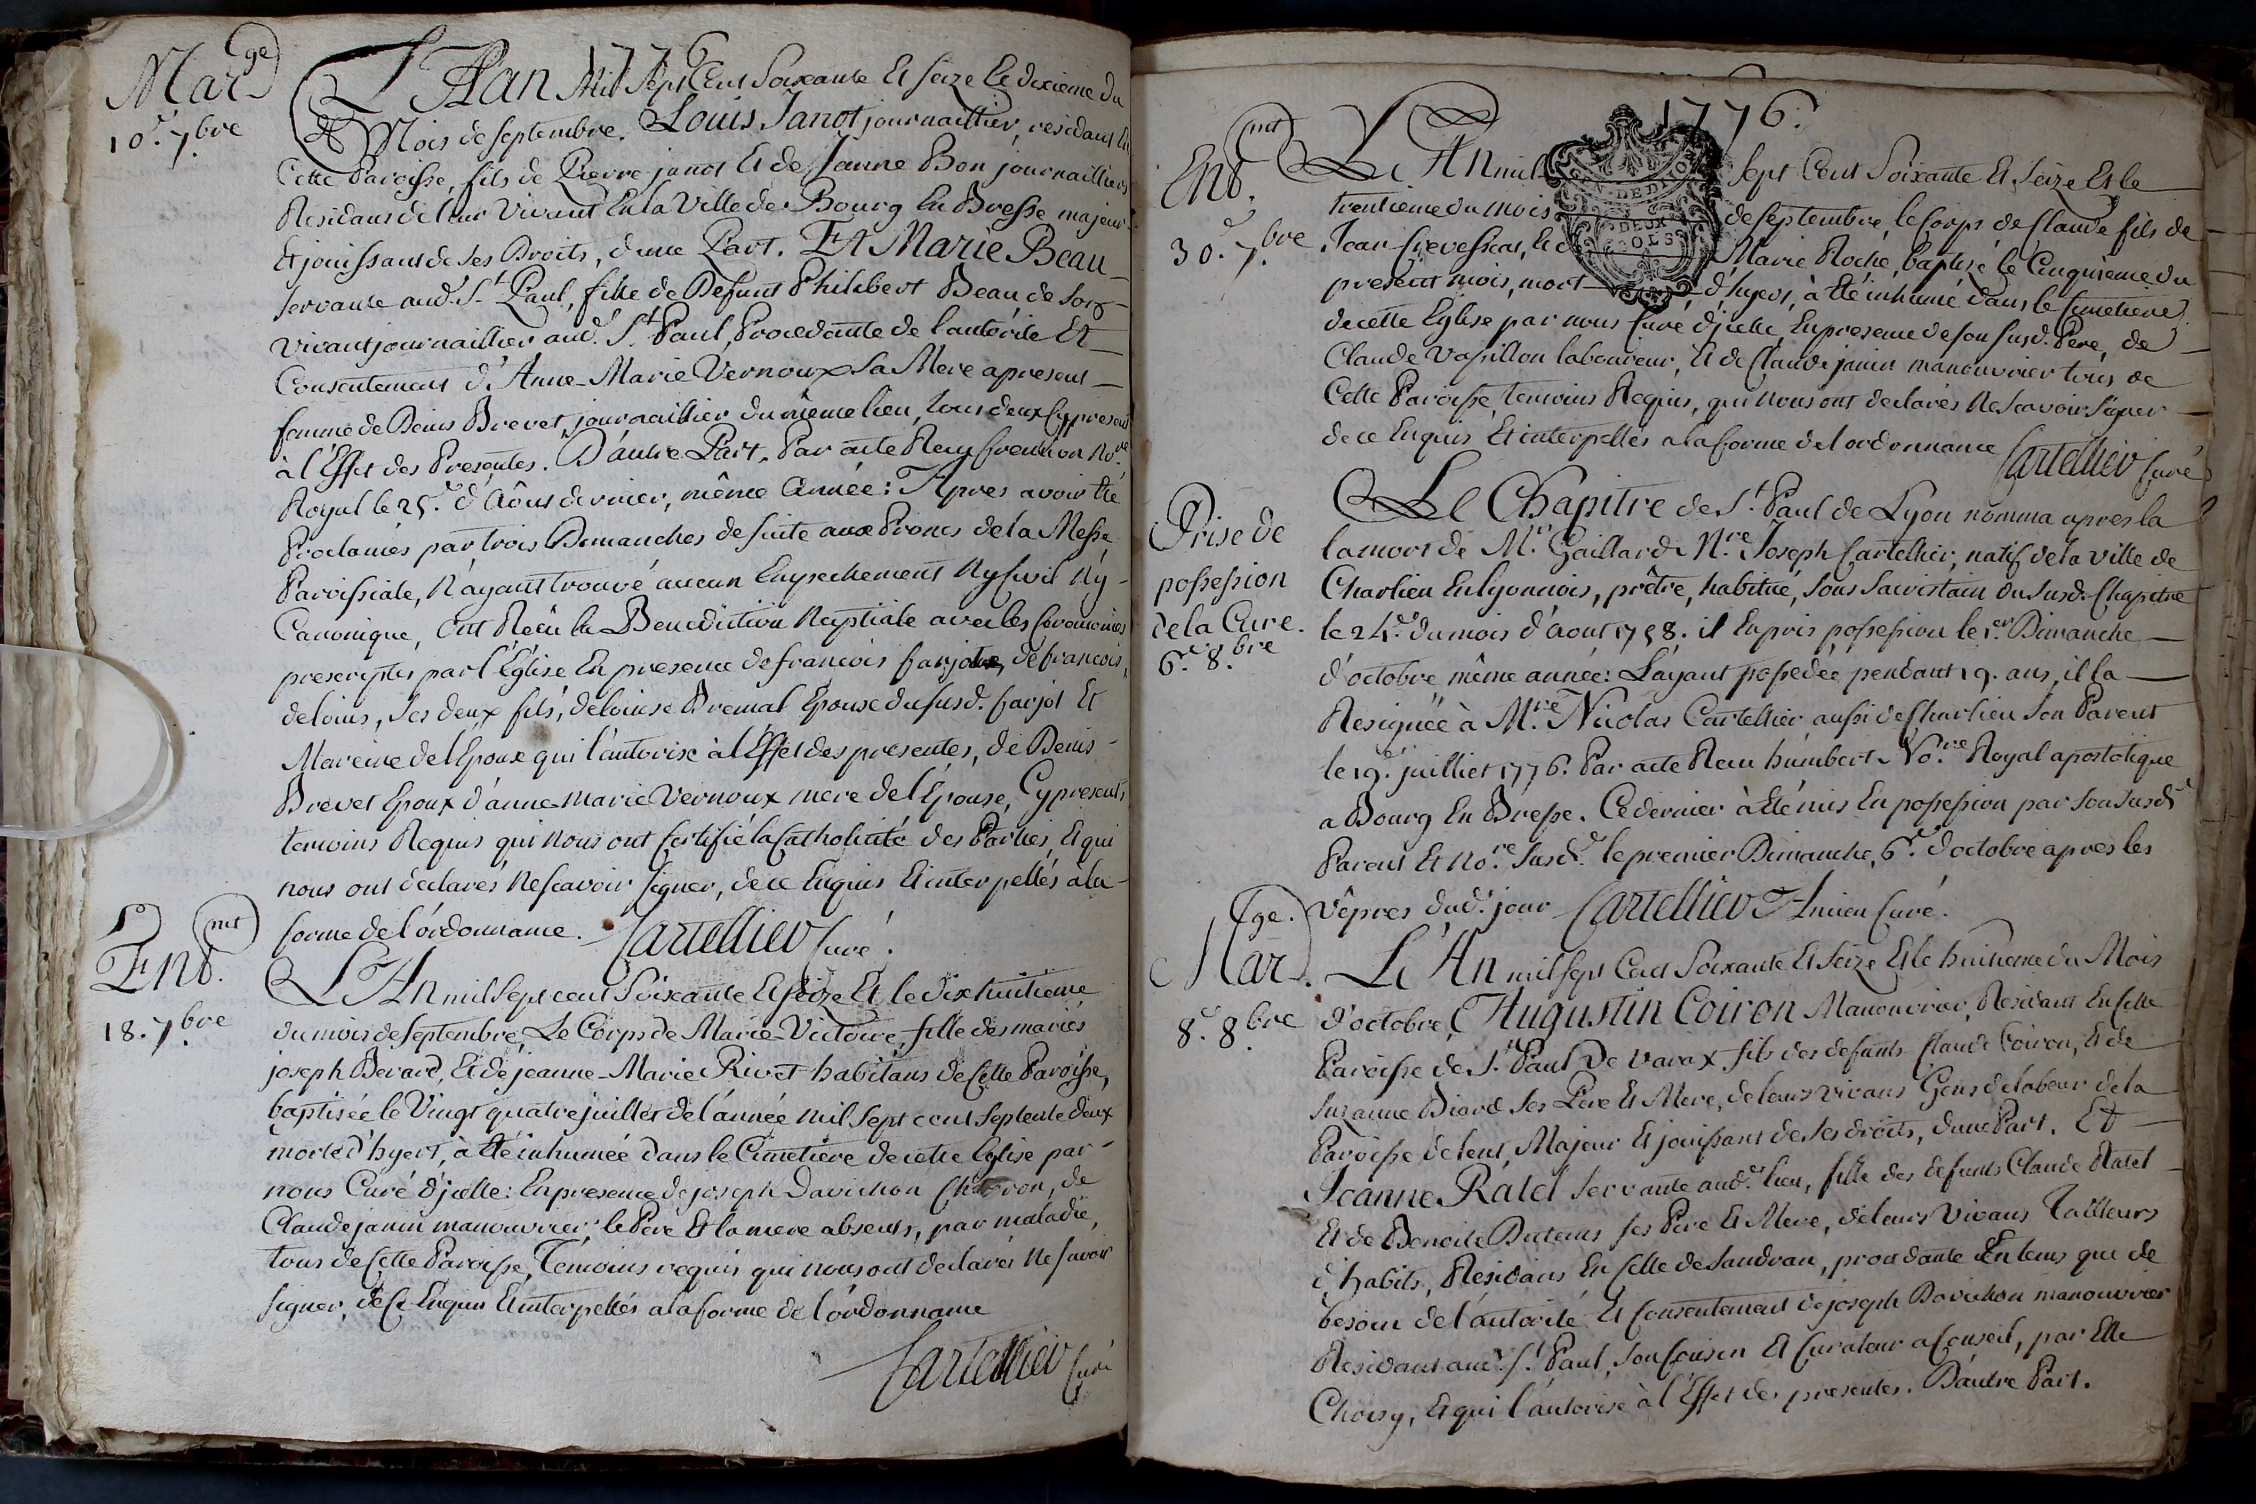 1776
Mar.ge
10.e 7.bre
L'An Mil Sept Cent Soixante Et Seize Le dixieme du
Mois de septembre. Louis Janot journaillier, residant En
Cette Paroisse, fils de Pierre janot Et de Janne Bon journailliers
Residans de leur Vivant En la Ville de Bourg En Bresse majeur
Et jouissant de ses Droits, d'une Part. Et Marie Beau
servante aud. St. Paul, fille de Defunt Philibert Beau de son
vivant journaillier aud. St. Paul, Procedante de l'autorité Et
Consentement d'Anne-Marie Vernoux Sa Mere apresent
femme de Denis Brevet, journaillier du même lieu, tous deux Cy presens
à l'Effet des Presentes. D'autre Part. Par acte Reçu No.re
Royal le 25.e d'Aôust dernier, même Année: Apres avoir Été
Proclamés par trois Dimanches de suite aux Prônes de la Messe
Paroissiale, N'ayant trouvé aucun Empechement Ny Civil Ny
Canonique, Ont Reçû la Benediction Nuptiale avec les Ceremonies
prescriptes par l'Église En presence de francois farjot, de francois,
de louis, Ses deux fils, de louise Bremal Epouse du susd. farjot Et
Mareine de l'Epoux qui l'autorise à l'Effet des presentes, de Denis
Brevet Epoux d'anne-Marie Vernoux mere de l'Epouse, Cy presents
temoins Requis qui nous ont Certifié la Catholicité des Parties, Et qui
nous ont declarés Ne scavoir signer, de ce Enquis Et interpellés a la
forme de l'ordonnance. Cartellier Curé.
Ent.mt
18. 7.bre
L'An mil Sept cent Soixante Et Seize Et le dix huitieme
du mois de septembre, Le Corps de Marie-Victoire, fille des mariés
joseph Berard, Et de jeanne-Marie Rivet habitans de Cette Paroisse,
baptisée le Vingt quatre juillet de l'année mil Sept cent Septente deux
morte d'hyert, à Été inhumée dans le Cimetiere de cette Eglise par
nous Curé d'jcelle: En presence de joseph Davichon Charron, de
Claude janin manouvrier, le Pere Et la mere absents, par maladie,
tous de Cette Paroisse, Témoins requis qui nous ont declarés Ne savoir
signer, de Ce Enquis Et interpellés a la forme de l'ordonnance
Cartellier Curé
1776.
GEN. DE DIJON
DEUX SOLS
Ent.mt
30. 7.bre
L'An mil Sept Cent Soixante Et Seize Et le
trentieme du mois de septembre, le Corps de Claude fils de
Jean Crevessat, Et d Marie Roché, baptisé le Cinquieme du
présent mois, mort d'hyert, à Été inhumé dans le Cimetiere
de cette Eglise par nous Curé d'jcelle, En presence de son susd. Pere, de
Claude Vassillon laboureur, Et de Claude janin manouvrier tous de
Cette Paroisse, temoins Requis, qui Nous ont declarés Ne Scavoir Signer
de ce Enquis Et interpellés a la forme de l'ordonnance Cartellier Curé
Prise de
possession
de la Cure.
6.e 8.bre
Le Chapitre de St. Paul de Lyon nomma apres la
la mort de Mr. Gaillard M.re Joseph Cartellier, natif de la Ville de
Charlieu En lyonnois, prêtre, habitué, Sous Sacristain du Susd. Chapitre
le 24.e du mois d'Aout 1758. il En pris possession le 1.er Dimanche
d'octobre même année: L'ayant possedée pendant 19. ans, il la
Resignée à M.re Nicolas Cartellier aussi de Charlieu Son Parent
le 19.e juilliet 1776. Par acte Recu humbert No.re Royal apostolique
a Bourg En Bresse. Ce dernier à Eté mis En possession par Son Susd.
Parent Et No.re Susd. le premier Dimanche, 6.e d'octobre apres les
Vêpres dud. jour Cartellier Ancien Curé.
Mar.ge
8.e 8.bre
L'An mil Sept Cent Soixante Et Seize Et le huitieme du Mois
d'octobre, Augustin Coiron Manouvrier, Residant En Cette
Paroisse de St. Paul De Varax fils des defunts Claude Coiron, Et de
Suzanne Biard Ses Pere Et Mere, de leurs vivans Gens de labeur de la
Paroisse de lent, Majeur Et jouissant de Ses droits, d'une Part. Et
Jeanne Ratel Servante aud. lieu, fille des defunts Claude Ratel
Et de Benoite Buttens ses Pere Et Mere, de leurs Vivans Tailleurs
d'habits, Residans En Celle de Sandran, procedante En tems que de
besoin de l'autorité Et Consentement de joseph Davichon manouvrier
Residant aud. St. Paul, Son Cousin Et Curateur a Conseil, par Elle
Choisy, Et qui l'autorise à l'Effet des presentes. D'autre Part.